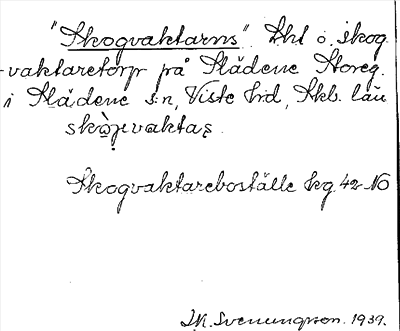 "Skogvaktarns". Lht o. skog
-vaktaretorp på Slädene Storeg.
i Slädene s:n, Viste hd, Skb. län
skòg̣evaktaṣ.
Skogvaktareboställe hg. 42 NO
I.K. Svenungsson. 1939.